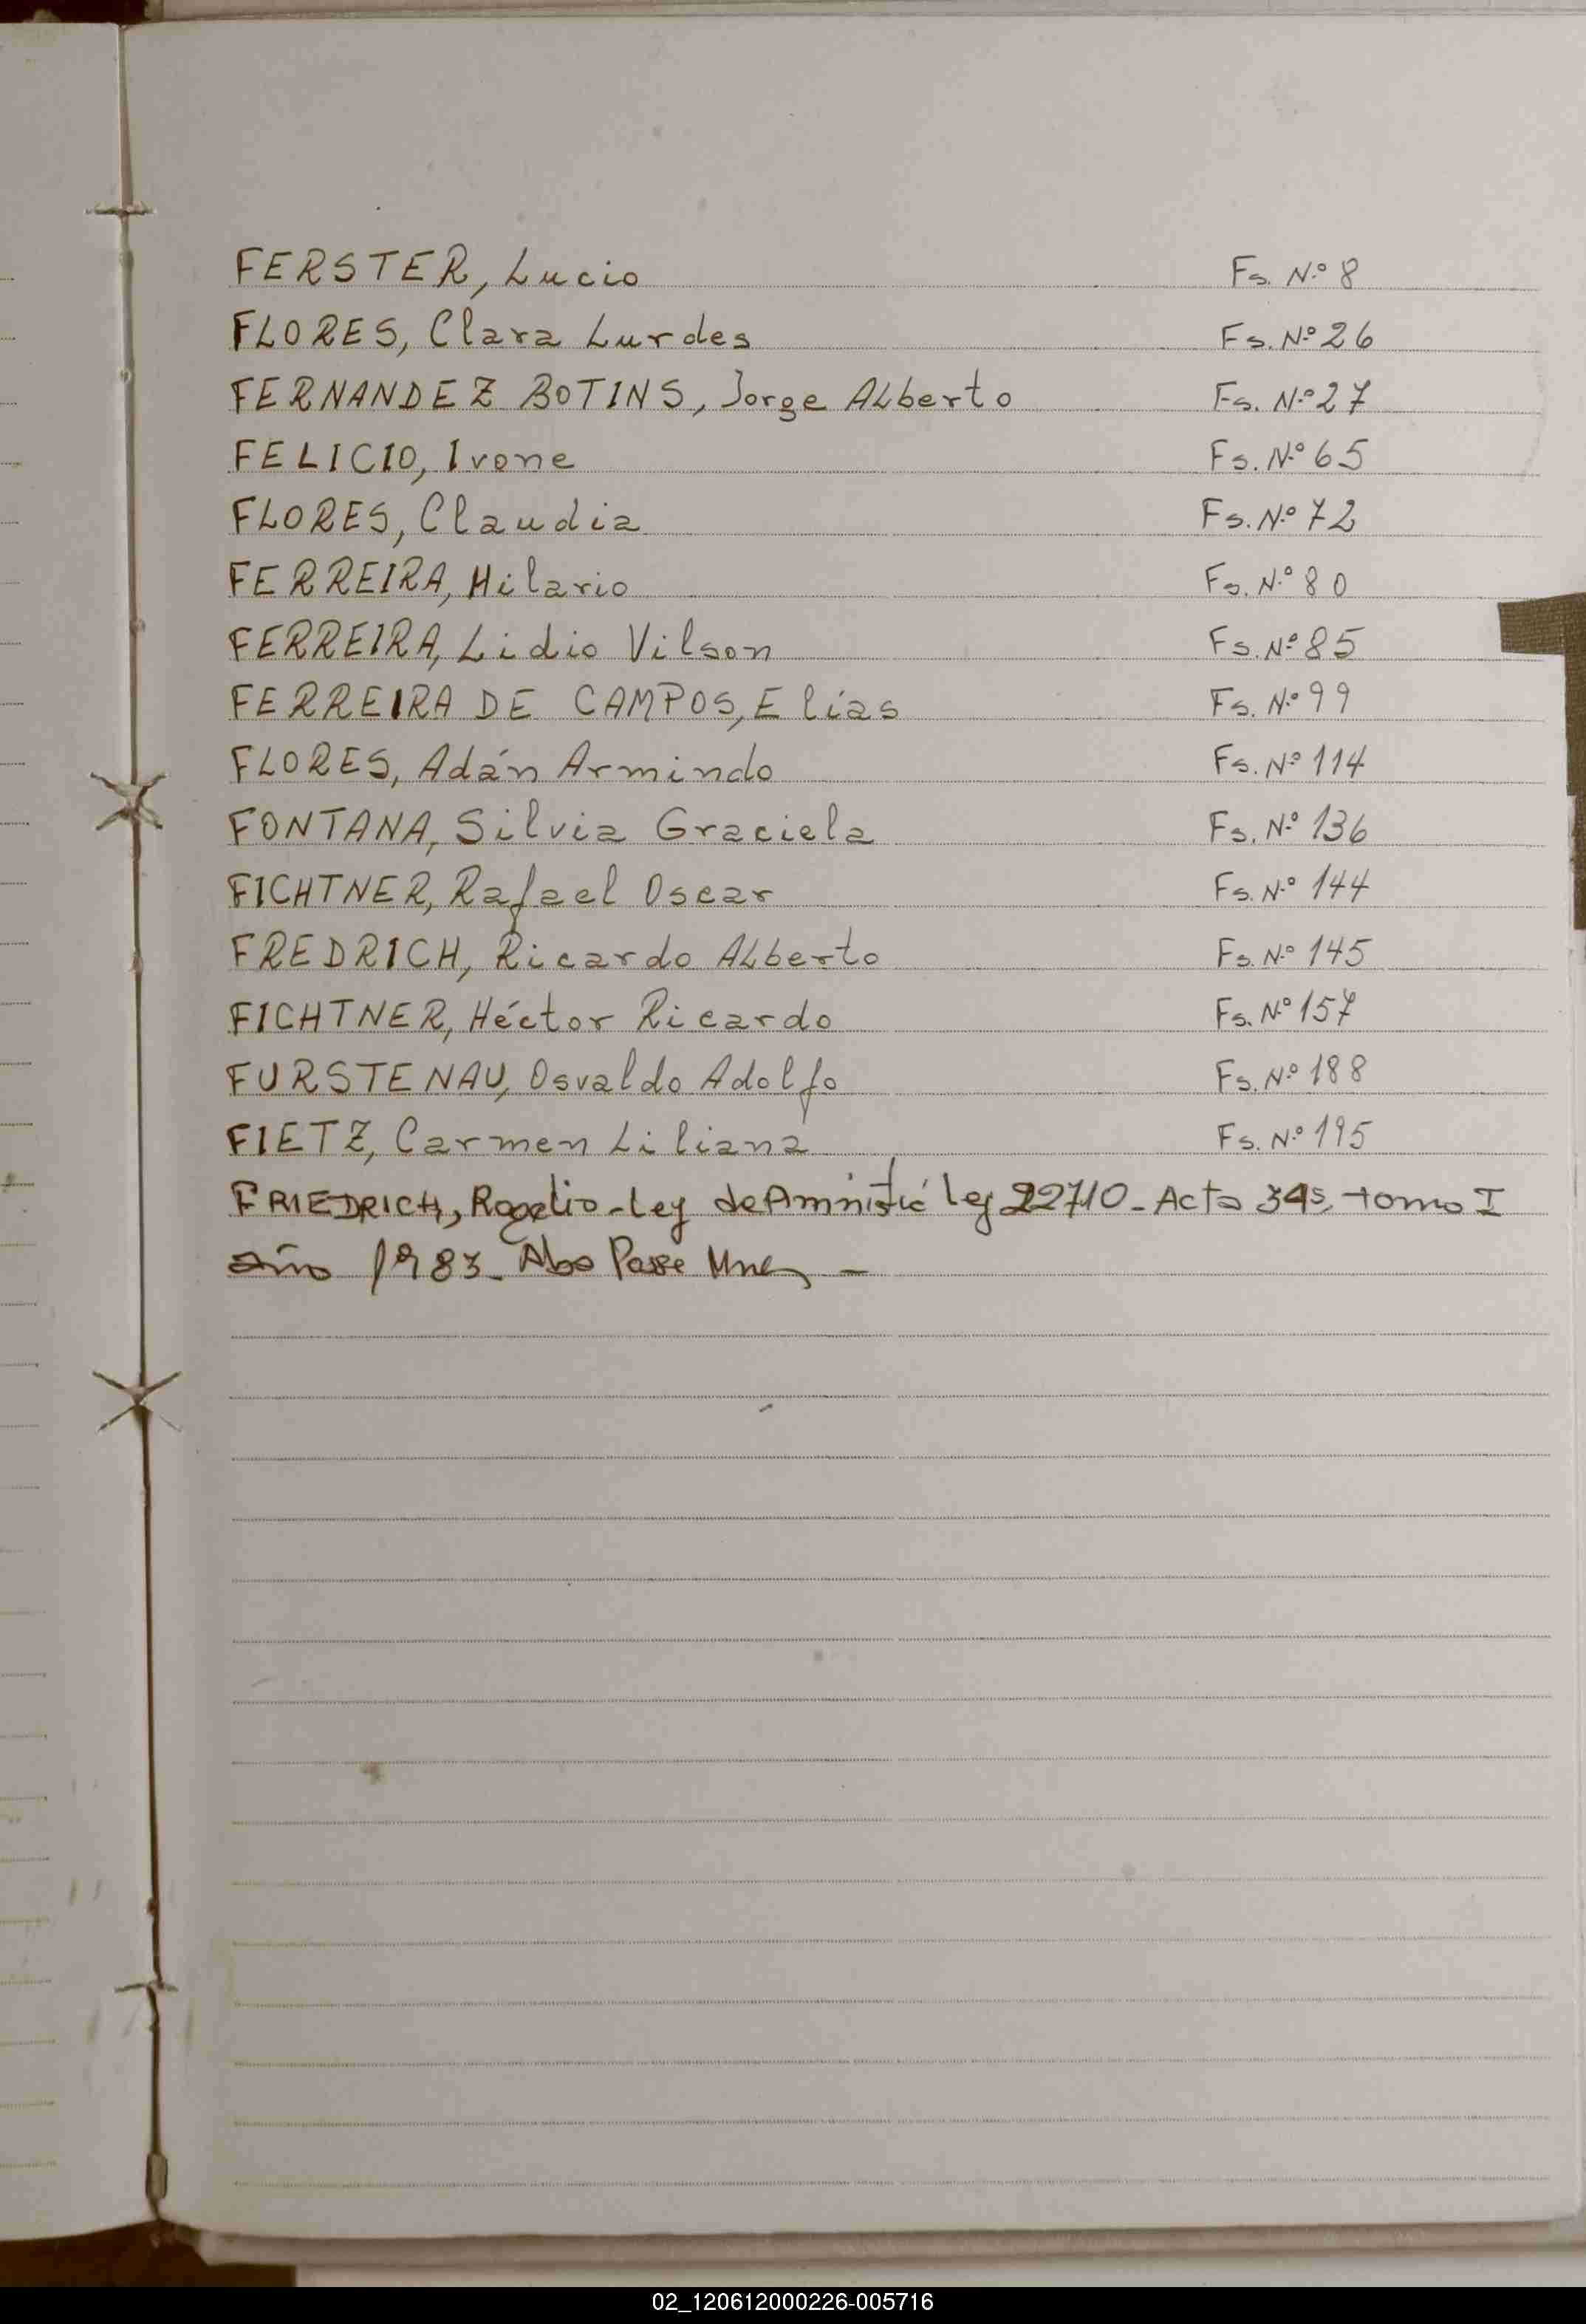 FERSTER, Lucio Fs. N.º 8
FLORES, Clara Lurdes Fs. N.º 26
FERNANDEZ BOTINS, Jorge Alberto Fs. N.º 27
FELICIO, Ivone Fs. N.º 65
FLORES, Claudia Fs. N.º 72
FERREIRA, Hilario Fs. N.º 80
FERREIRA, Lidio Vilson Fs. N.º 85
FERREIRA DE CAMPOS, Elías Fs. N.º 99
FLORES, Adán Armindo Fs. N.º 114
FONTANA, Silvia Graciela Fs. N.º 136
FICHTNER, Rafael Oscar Fs. N.º 144
FREDRICH, Ricardo Alberto Fs. N.º 145
FICHTNER, Héctor Ricardo Fs. N.º 157
FURSTENAU, Osvaldo Adolfo Fs. N.º 188
FIETZ, Carmen Liliana Fs. N.º 195
FRIEDRICH, Rogelio - Ley de Amnistié Ley 22710 - Acta tomo I
año 1983 -
02_120612000226-005716